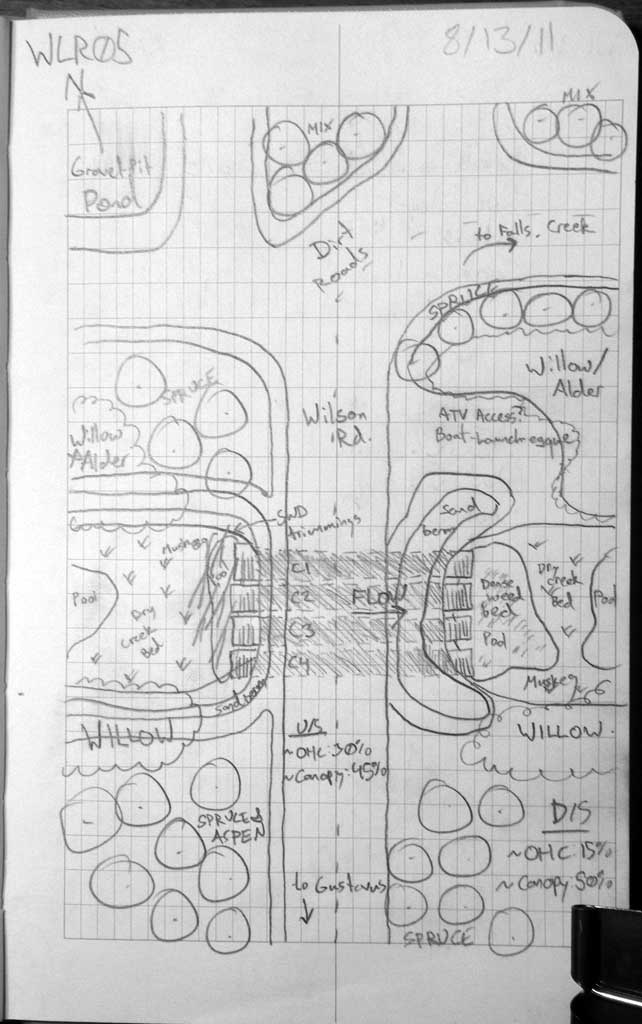 WLR05
8/13/11
N
MIX
MIX
Gravel Pit
Pond
Dirt
Roads
to Falls Creek
SPRUCE
SPRUCE
Willow/
Alder
Willow
Alder
Wilson
Rd.
ATV Access?
Boat-launchesque
Sand
berm
trimmings
Muskeg
Pool
C1
C2
C3
C4
FLOW
Pool
Dry
Creek
Bed
Dense
weed
bed
Pool
Dry
creek
Bed
Pool
Muskeg
Sand berm
WILLOW
WILLOW
U/S
~OHC: 30%
~Canopy: 45%
SPRUCE &
ASPEN
D/S
~OHC: 15%
~Canopy: 50%
to Gustavus
SPRUCE